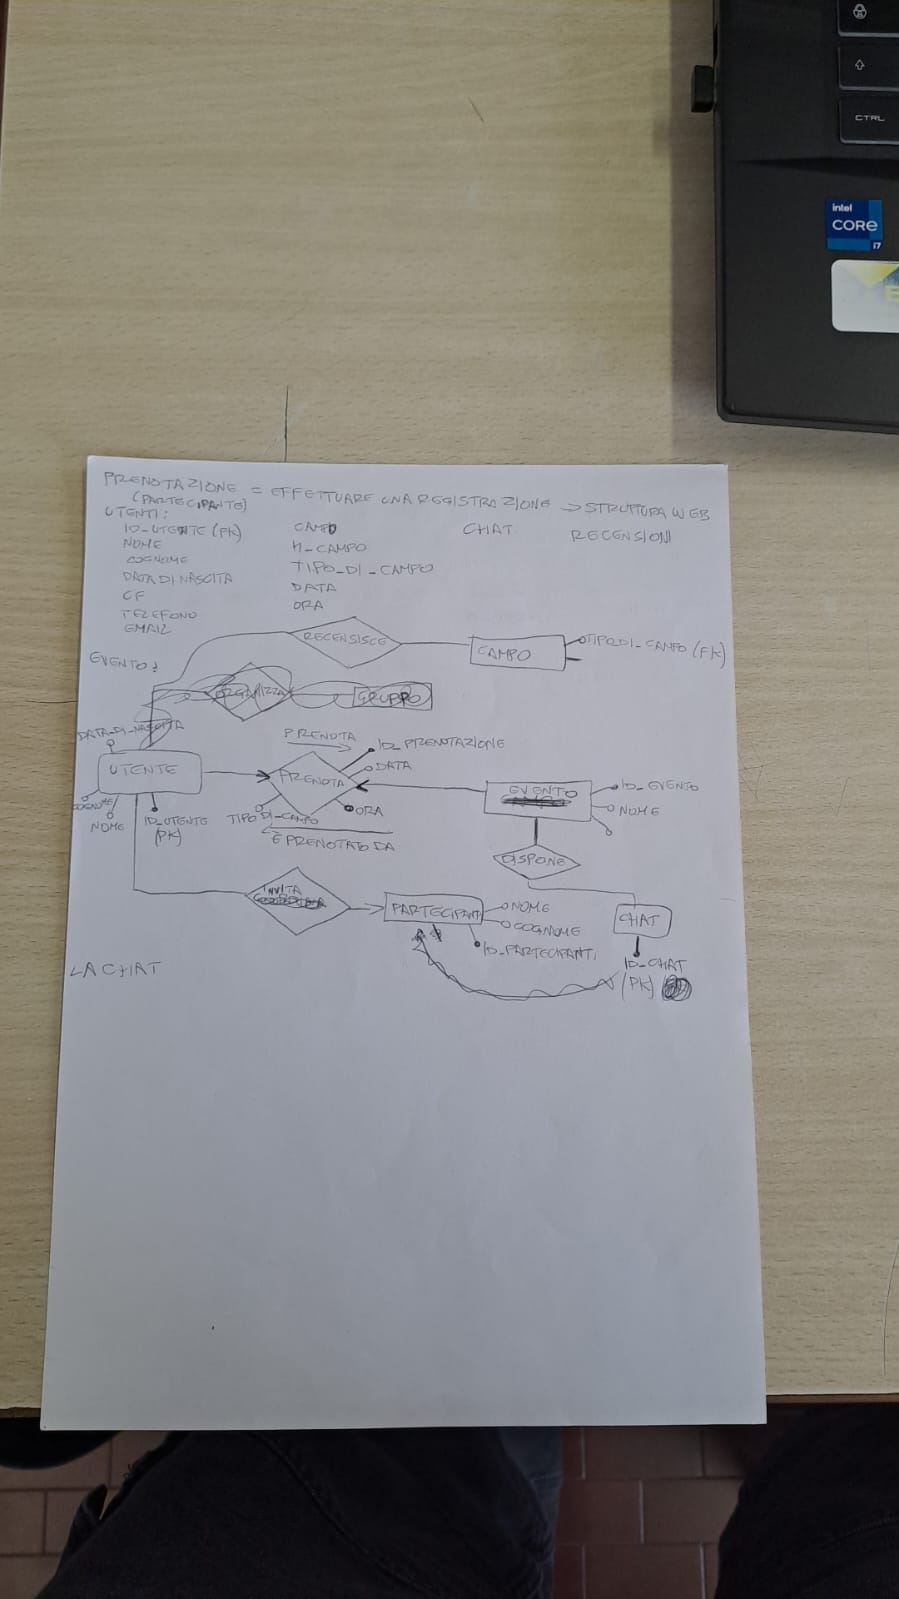 CTRL
intel
CORE
i7
PRENOTAZIONE = EFFETTUARE UNA REGISTRAZIONE -> STRUTTURA WEB
(PARTECIPANTE)
UTENTI:
ID_UTENTE (PK)
NOME
COGNOME
DATA DI NASCITA
CF
TELEFONO
EMAIL
CAMPO
N_CAMPO
TIPO_DI_CAMPO
DATA
ORA
CHAT
RECENSIONI
EVENTO:
RECENSISCE
CAMPO
TIPO DI_CAMPO (FK)
ORGANIZZA
GRUPPO
DATA_DI_NASCITA
UTENTE
COGNOME
NOME
ID_UTENTE
(PK)
PRENOTA
PRENOTA
ID_PRENOTAZIONE
DATA
ORA
TIPO DI_CAMPO
È PRENOTATO DA
EVENTO
ID_EVENTO
NOME
DISPONE
INVITA
PARTECIPANTI
NOME
COGNOME
ID_PARTECIPANTI
CHAT
ID_CHAT
(PK)
LA CHAT